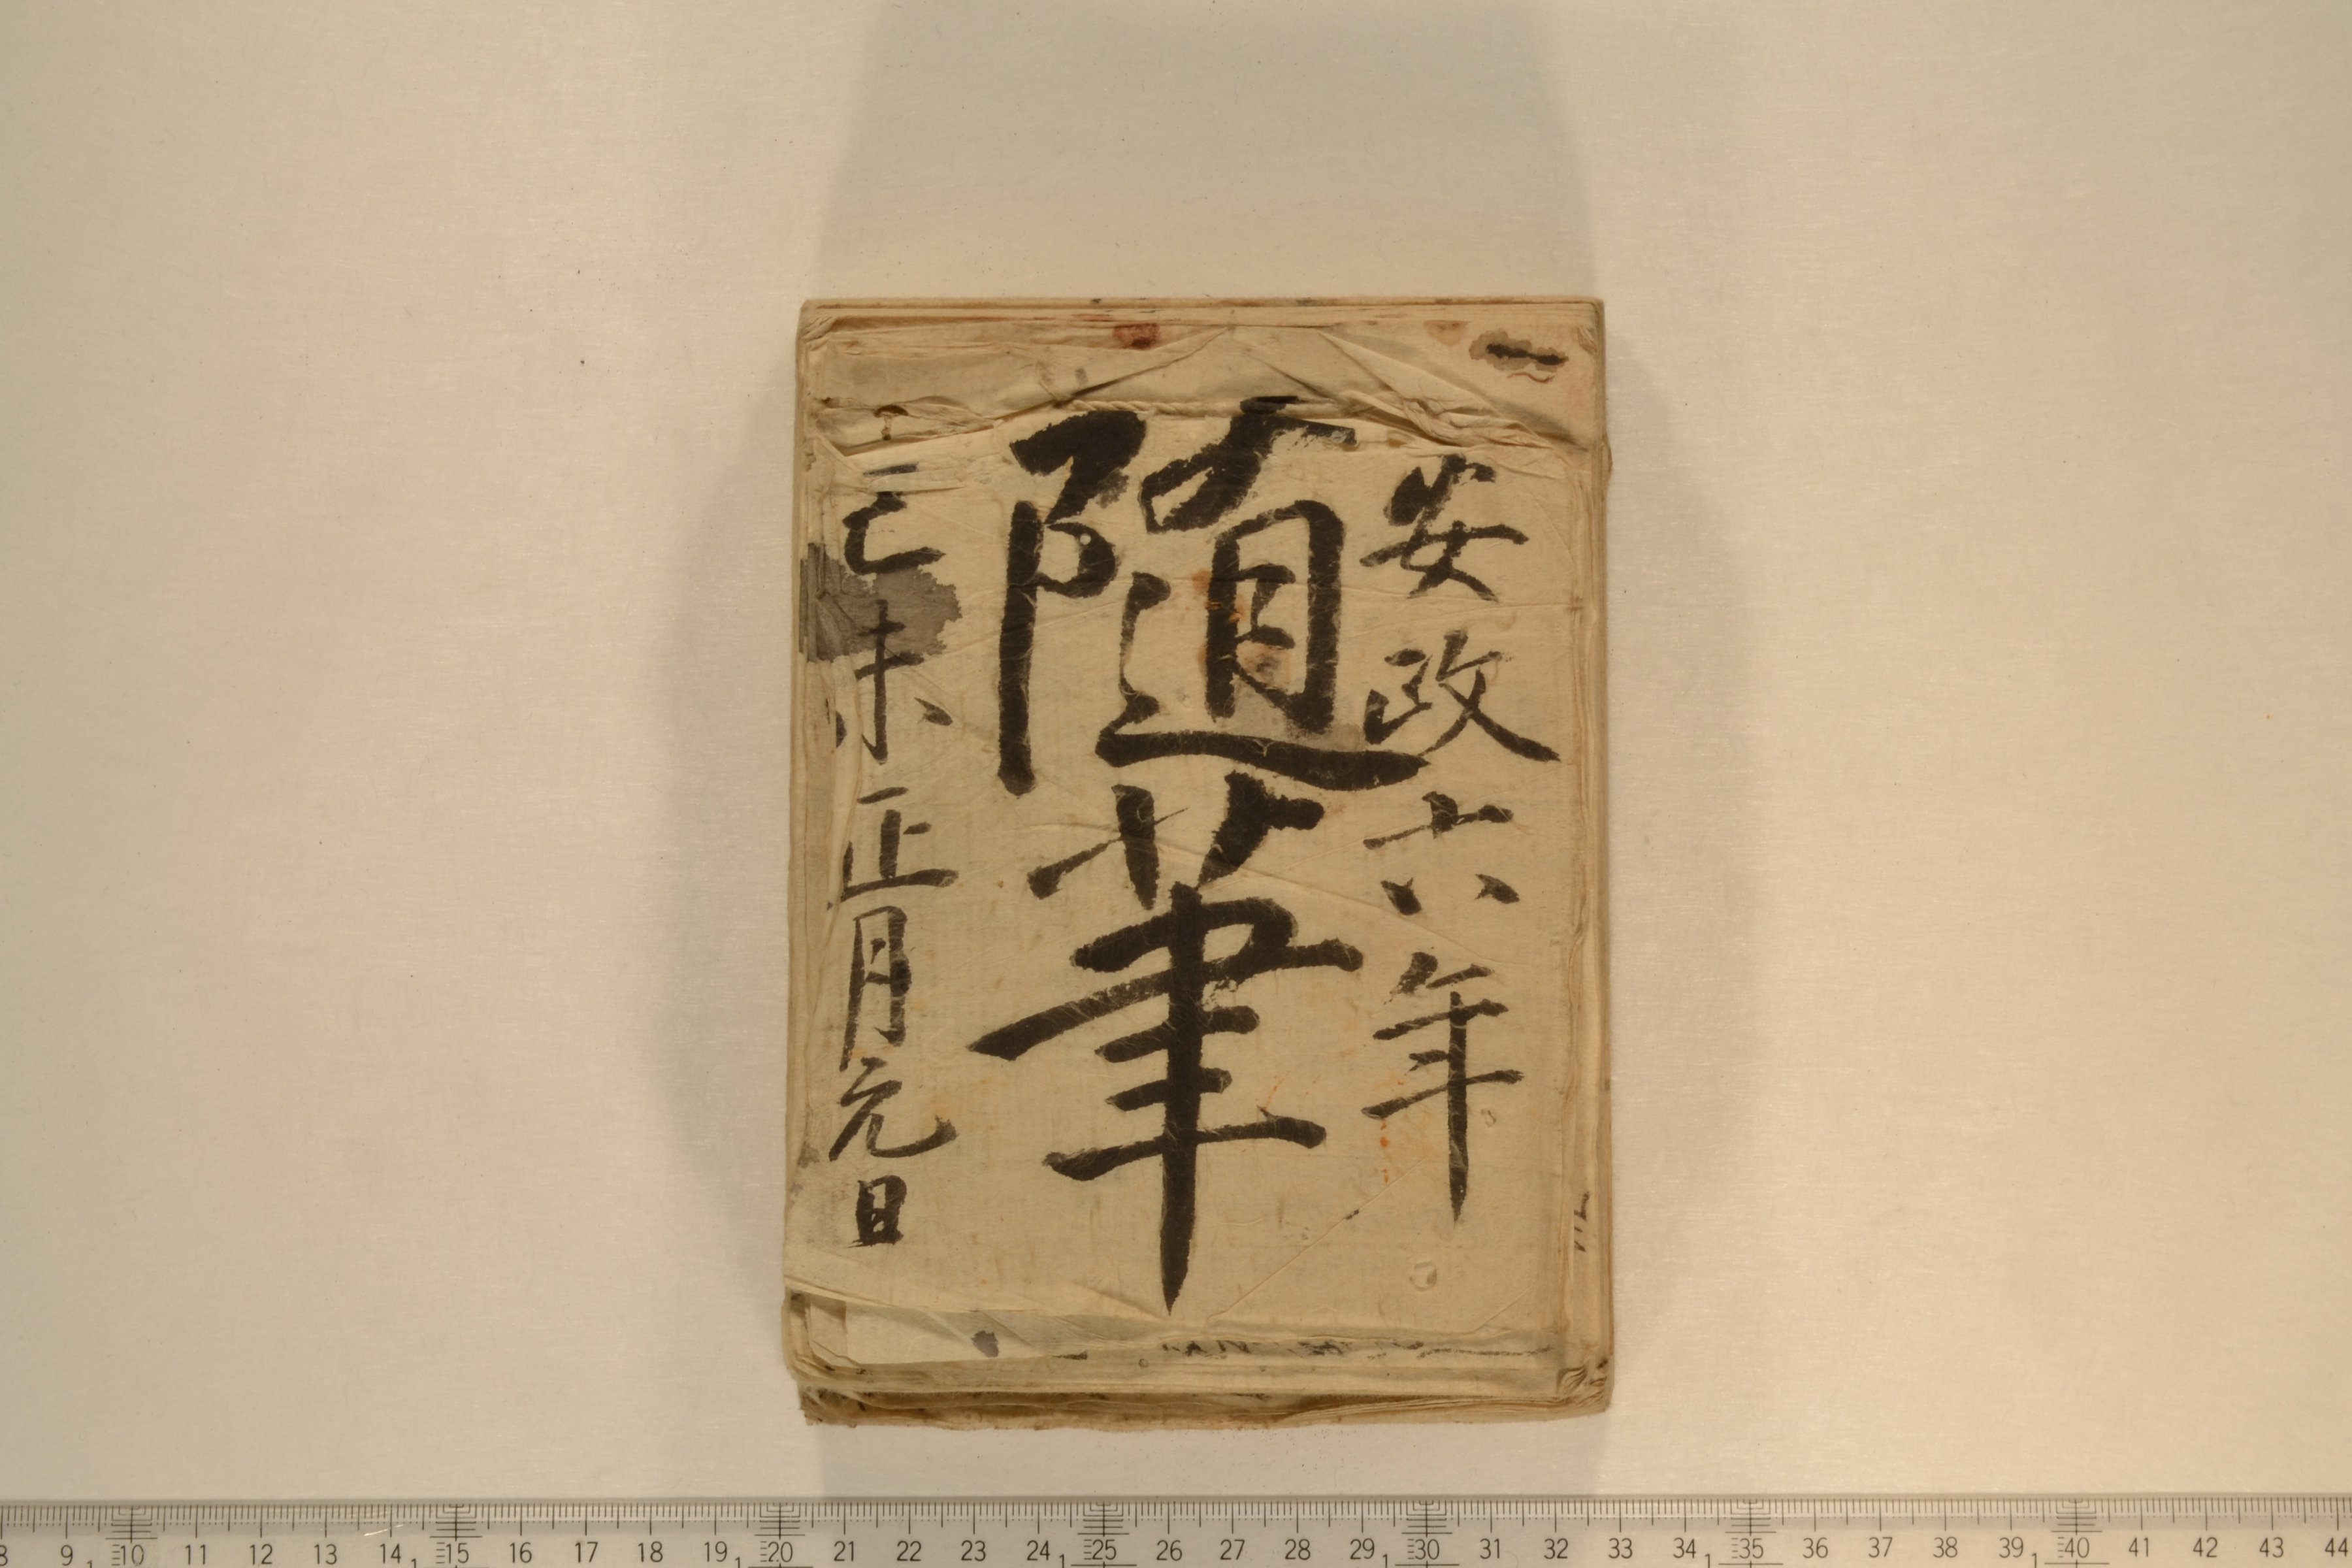 安政六年
随筆
己未正月元日
8 9 10 11 12 13 14 15 16 17 18 19 20 21 22 23 24 25 26 27 28 29 30 31 32 33 34 35 36 37 38 39 40 41 42 43 44